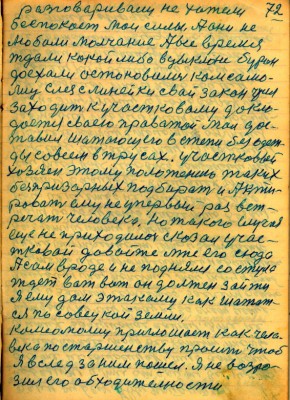 72
разговариваем не хотели
беспокоет мои слезы а они не
любали молчание А все время
ждали какой либо
доехали остоновили комсамо-
лиц слез с линейки свой закон учил
заходит к участковому докло-
дает своего правотой Мол дос-
тавил шатающего в степи без одеж-
ды совсем в трусах. участковый
хозяен этому положению таких
безпризорных подбирать и
ровать ему не уперьвый раз вст-
речать человека, но такого случая
еще не приходилос сказал учас-
тковай довайте мне его сюдо
А сам вроде и не поднялся со стула
ждет вот вот он должен зайти
я ему дам этакаму как шатат-
ся по совецкой земли.
комсомолиц приглошает как чело-
века по старшенству проити чтоб
я вслед за ним пошел. Я не возро-
зил его обходителности